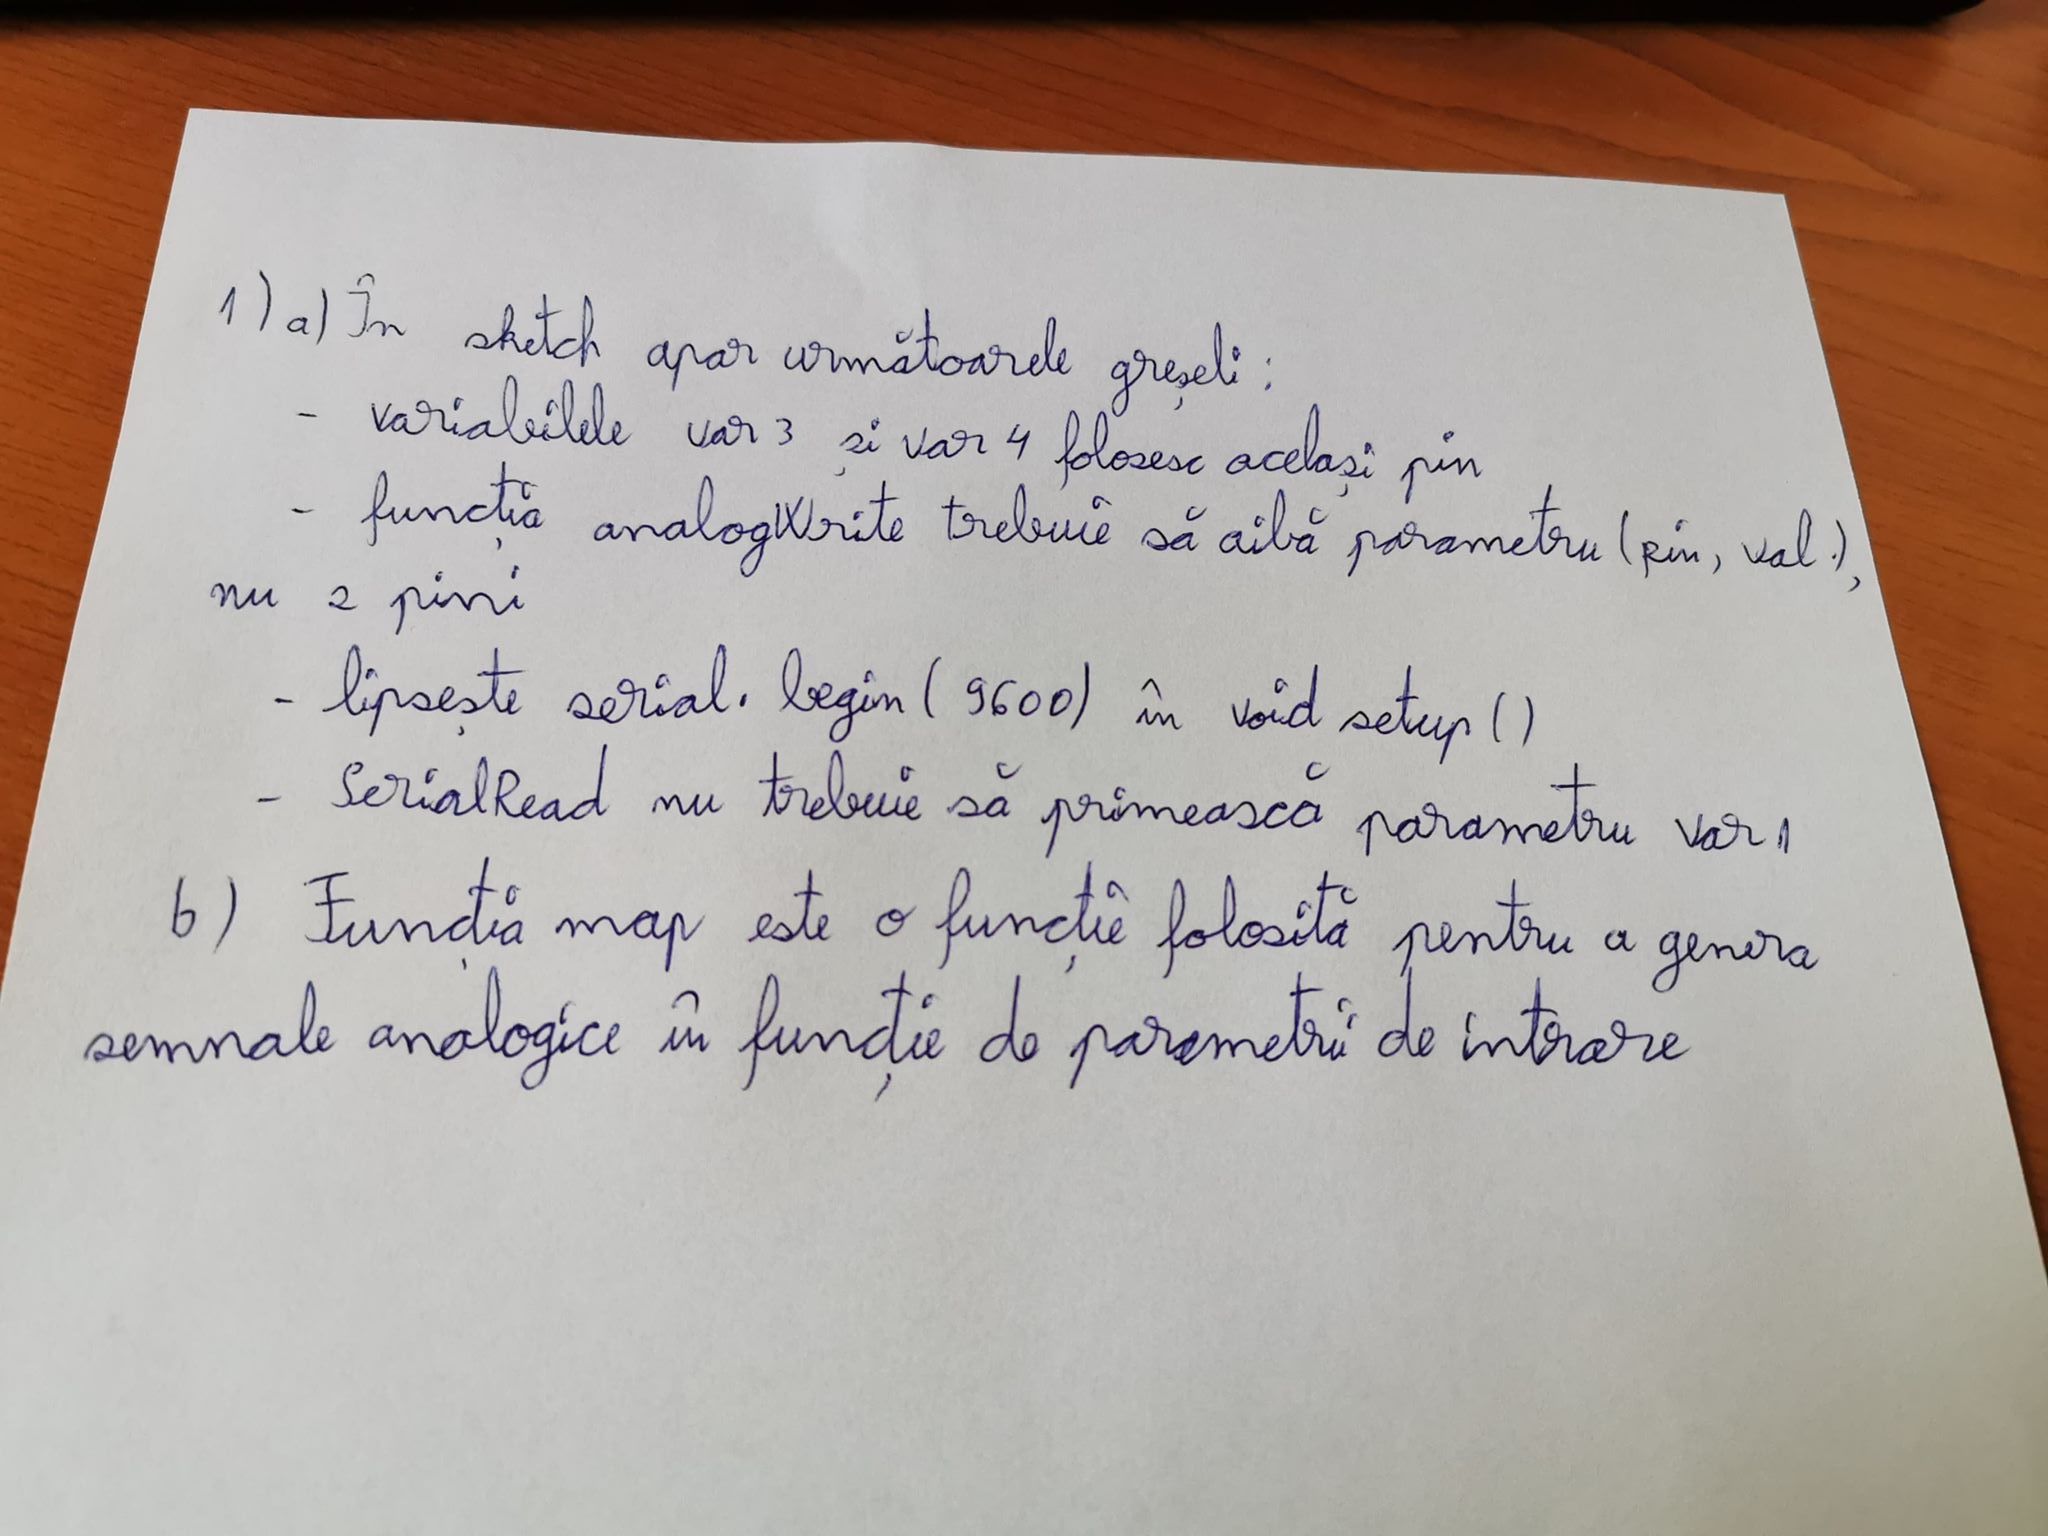 1) a) În sketch apar următoarele greșeli:
- variabilele var 3 și var 4 folosesc același pin
- funcția analogWrite trebuie să aibă parametru (pin, val.),
nu 2 pini
- lipsește serial. begin (9600) în void setup ()
- SerialRead nu trebuie să primească parametru var 1
b) Funcția map este o funcție folosită pentru a genera
semnale analogice în funcție de parametrii de intrare